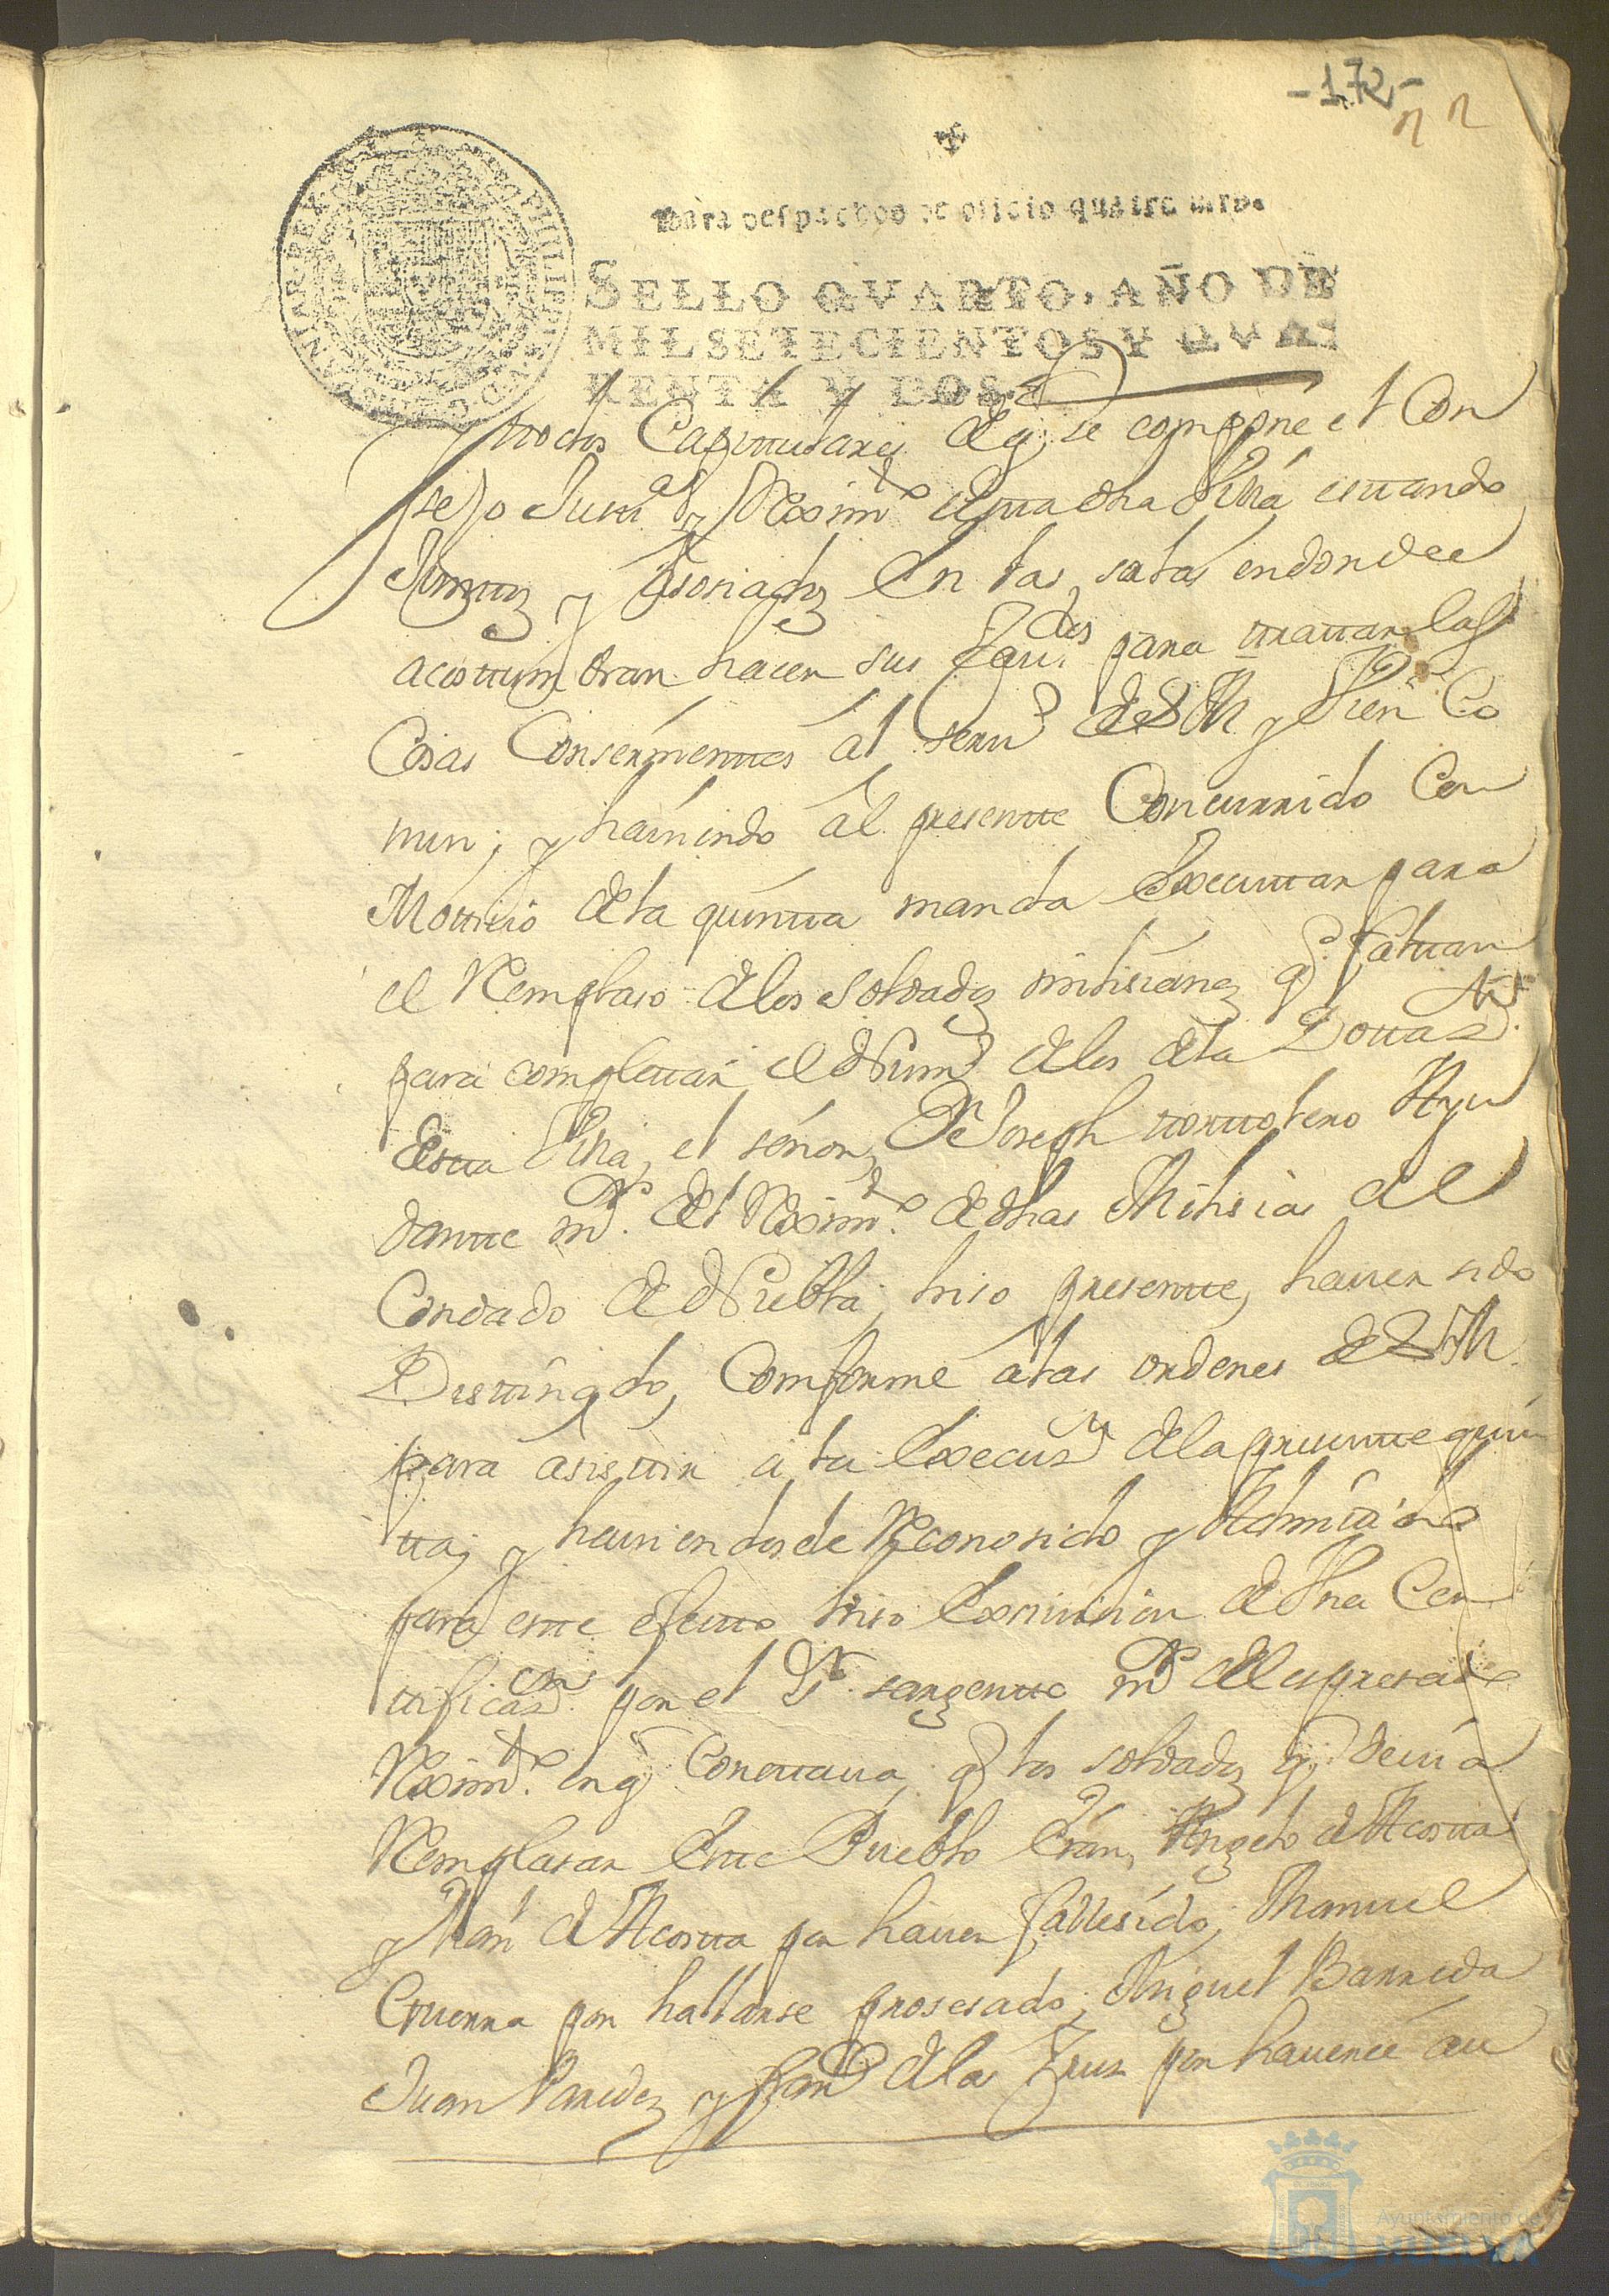 -172-
Para despachos de oficio quatro mrs.
SELLO QVARTO, AÑO DE
MIL SETECIENTOS Y QVA-
RENTA Y DOS.
ttodos Capitulares de q se compone el Con
sejo Justa y Reximto desta dha Villa estando
Junttos y Asosiados en las salas endonde
acostumbran hacer sus Cauildos para trattar las
Cosas Conserñientes al seruo de S M y Vien Co
mun; y hauiendo al presente Concurrido Con
Mottivo de la quintta manda Executtar para
el Remplaso de los soldados milisianos q faltan
para complettar el Numo de los de la Dottazn
desta Villa, el señor Dn Joseph monttotero Ayu
dantte mr del Reximto de dhas Milisias del
Condado de Niebla, hiso presentte, hauer sido
Desttinado, Comforme a las ordenes de S M
para asisttir a la Execuzn de la presentte quin
tta; y hauiendosele Reconosido y Admitido
para estte efectto hiso Exsiuision de Vna Cer
ttificazon por el Sr sargentto mr del espresado
Reximto en q Consttaua, q los soldados q deuia
Remplasar Estte Pueblo Eran, Angelo de Acostta
y Juan de Acostta por hauer fallesido; Manuel
Guerra por hallarse prosesado; Miguel Barreda
Juan Paredes y Franco de la Cruz por hauerse au
Ayuntamiento de
HUELVA